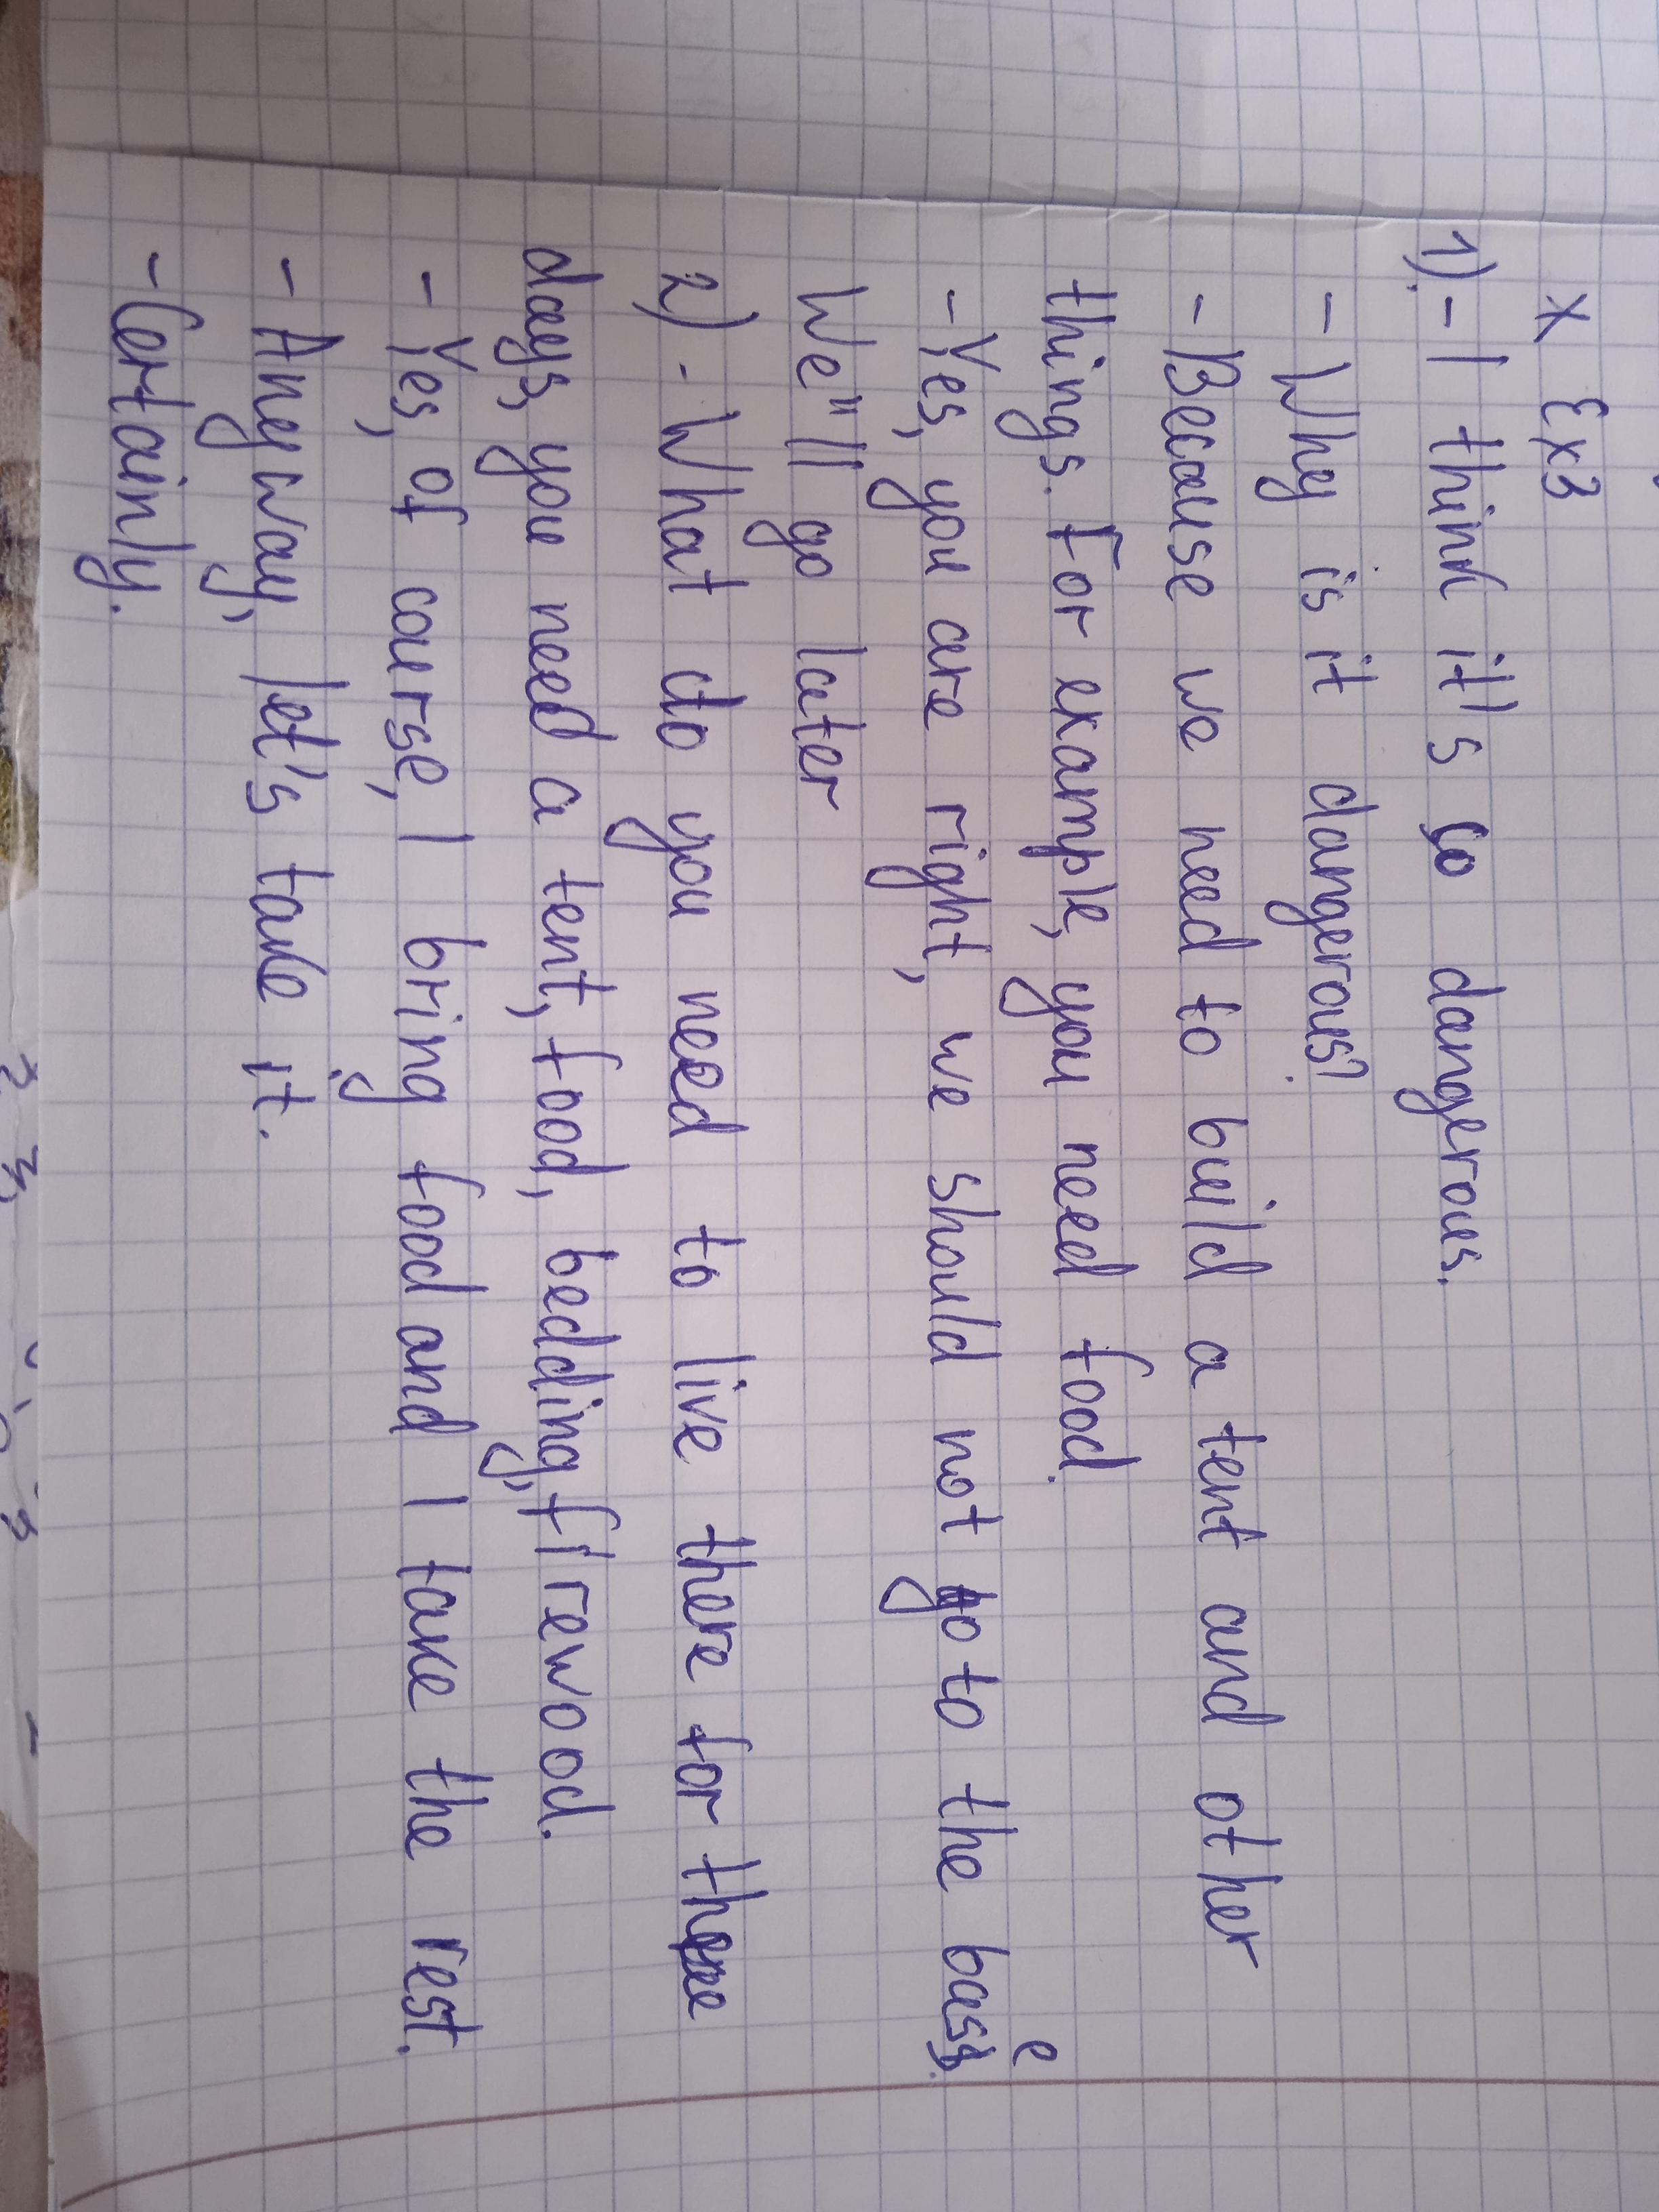 x Ex3
1).- I think it's so dangerous.
- Why is it dangerous?
- Because we need to build a tent and other
things. For example, you need food.
- Yes, you are right, we should not go to the base.
We"ll go later
2) - What do you need to live there for these
days, you need a tent, food, bedding, firewood.
- Yes, of course, I bring food and I take the rest.
- Anyway, let's take it.
- Certainly.